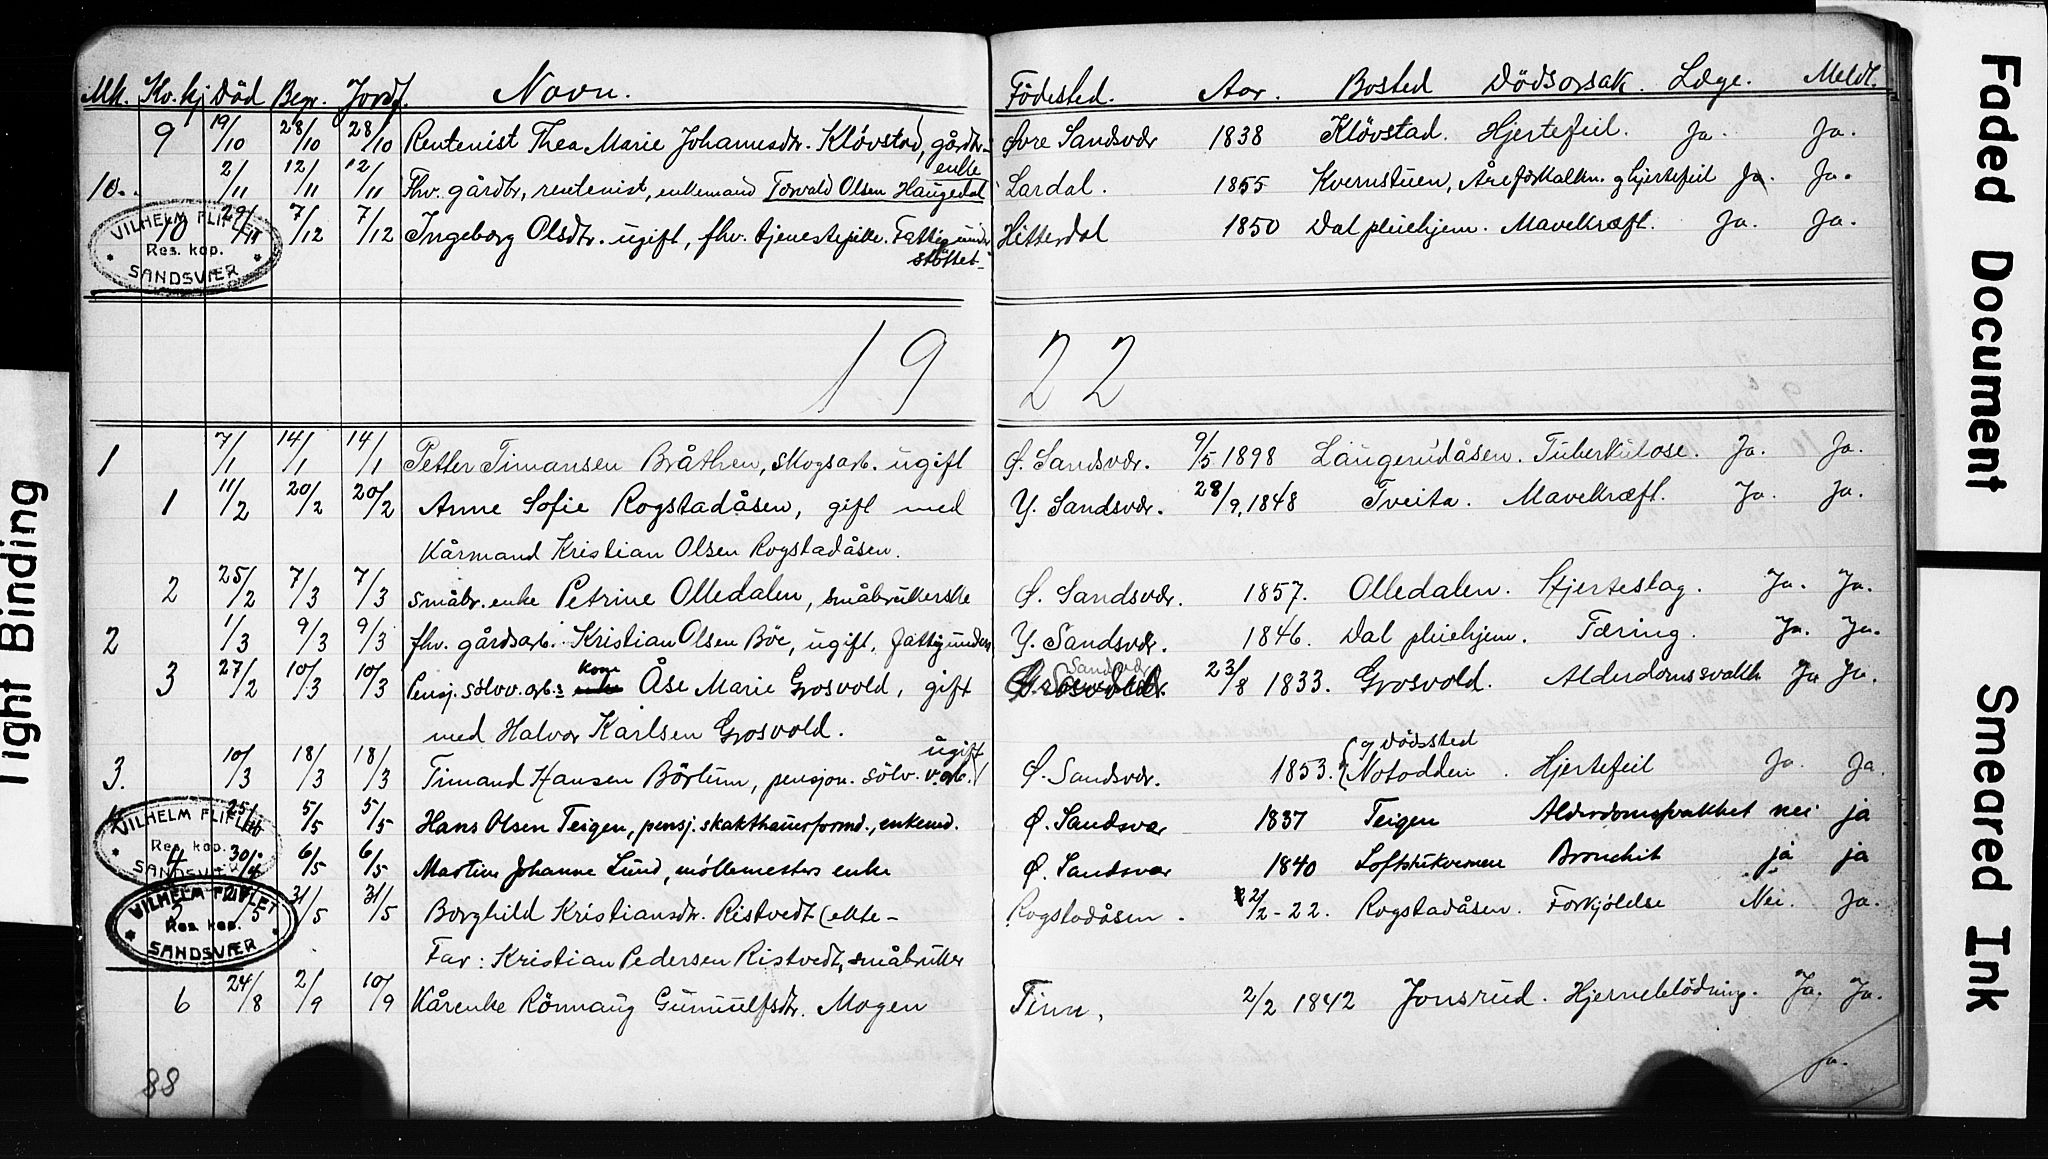 Mk. Kv. kj Död Begr. Jordf. Navn. Födested. Aar. Bosted Dödsorsak. Læge. Meldt.
9 19/10 28/10 28/10 Rentenist Thea Marie Johannesdtr. Klövstad, gårdbr.- Øvre Sandsvær 1838 Klövstad. Hjertefeil. Ja. Ja.
enke
10. 2/11 12/11 12/11 Fhv. gårdbr, rentenist, enkemand Torvald Olsen Haugedal Lardal. 1855 Kvernstuen, Åreforkalkn. g hjertefeil Ja. Ja.
10 29/11 7/12 7/12 Ingeborg Olsdtr. ugift, fhv. tjenestepike. Fattigunder Hitterdal 1850 Dal pleiehjem. Mavekræft. Ja. Ja.
støttet
VILHELM FLIFLET
Res. kap.
SANDSVÆR
19 22
1 7/1 14/1 14/1 Petter Timansen Bråthen, skogsarb. ugift Ø. Sandsvær. 9/5 1898 Laugerudåsen. Tuberkulose. Ja. Ja.
1 11/2 20/2 20/2 Anne Sofie Rogstadåsen, gift med Y. Sandsvær. 28/9. 1848 Tveita. Mavekræft. Ja. Ja.
Kårmand Kristian Olsen Rogstadåsen.
2 25/2 7/3 7/3 Småbr. enke Petrine Olledalen, småbrukerske Ø. Sandsvær. 1857. Olledalen. Hjerteslag. Ja. Ja.
2 1/3 9/3 9/3 fhv. gårdsarb. Kristian Olsen Böe, ugift, fattigunders Y. Sandsvær. 1846. Dal pleiehjem. Tæring. Ja. Ja.
3 27/2 10/3 10/3 Pensj. sølvv. arb.s kone Åse Marie Grosvold, gift Sandsvær 23/8 1833. Grosvold. Alderdomssvakh Ja Ja.
med Halvor Karlsen Grosvold.
3. 10/3 18/3 18/3 Timand Hansen Börtum, pensjon. sölv. v. arb. ugift Ø. Sandsvær. 1853. Notodden g Dödssted. Hjertefeil Ja. Ja.
25/4 5/5 5/5 Hans Olsen Teigen, pensj. skakthauerformd., enkemd. Ø. Sandsvær 1837 Teigen Alderdomssvakhet nei ja
VILHELM FLIFLET
Res. kap.
SANDSVÆR
4 30/4 6/5 6/5 Martine Johanne Lund, møllemesters enke Ø. Sandsvær 1840 Loftstukvernene Bronchit ja ja
5 31/5 31/5 Borghild Kristiansdtr. Ristvedt (ekte- Rogstadåsen. 2/2-22. Rogstadåsen. Forkjölelse Nei. Ja.
VILHELM FLIFLET
Res. kap.
SANDSVÆR
Far: Kristian Pedersen Ristvedt, småbruker
6 24/8 2/9 10/9 Kårenke Rönnaug Gunnulfsdtr. Mogen Tinn, 2/2 1842 Jonsrud. Hjerneblödning. Ja. Ja.
ja.
88
Tight Binding
Faded Document
Smeared Ink